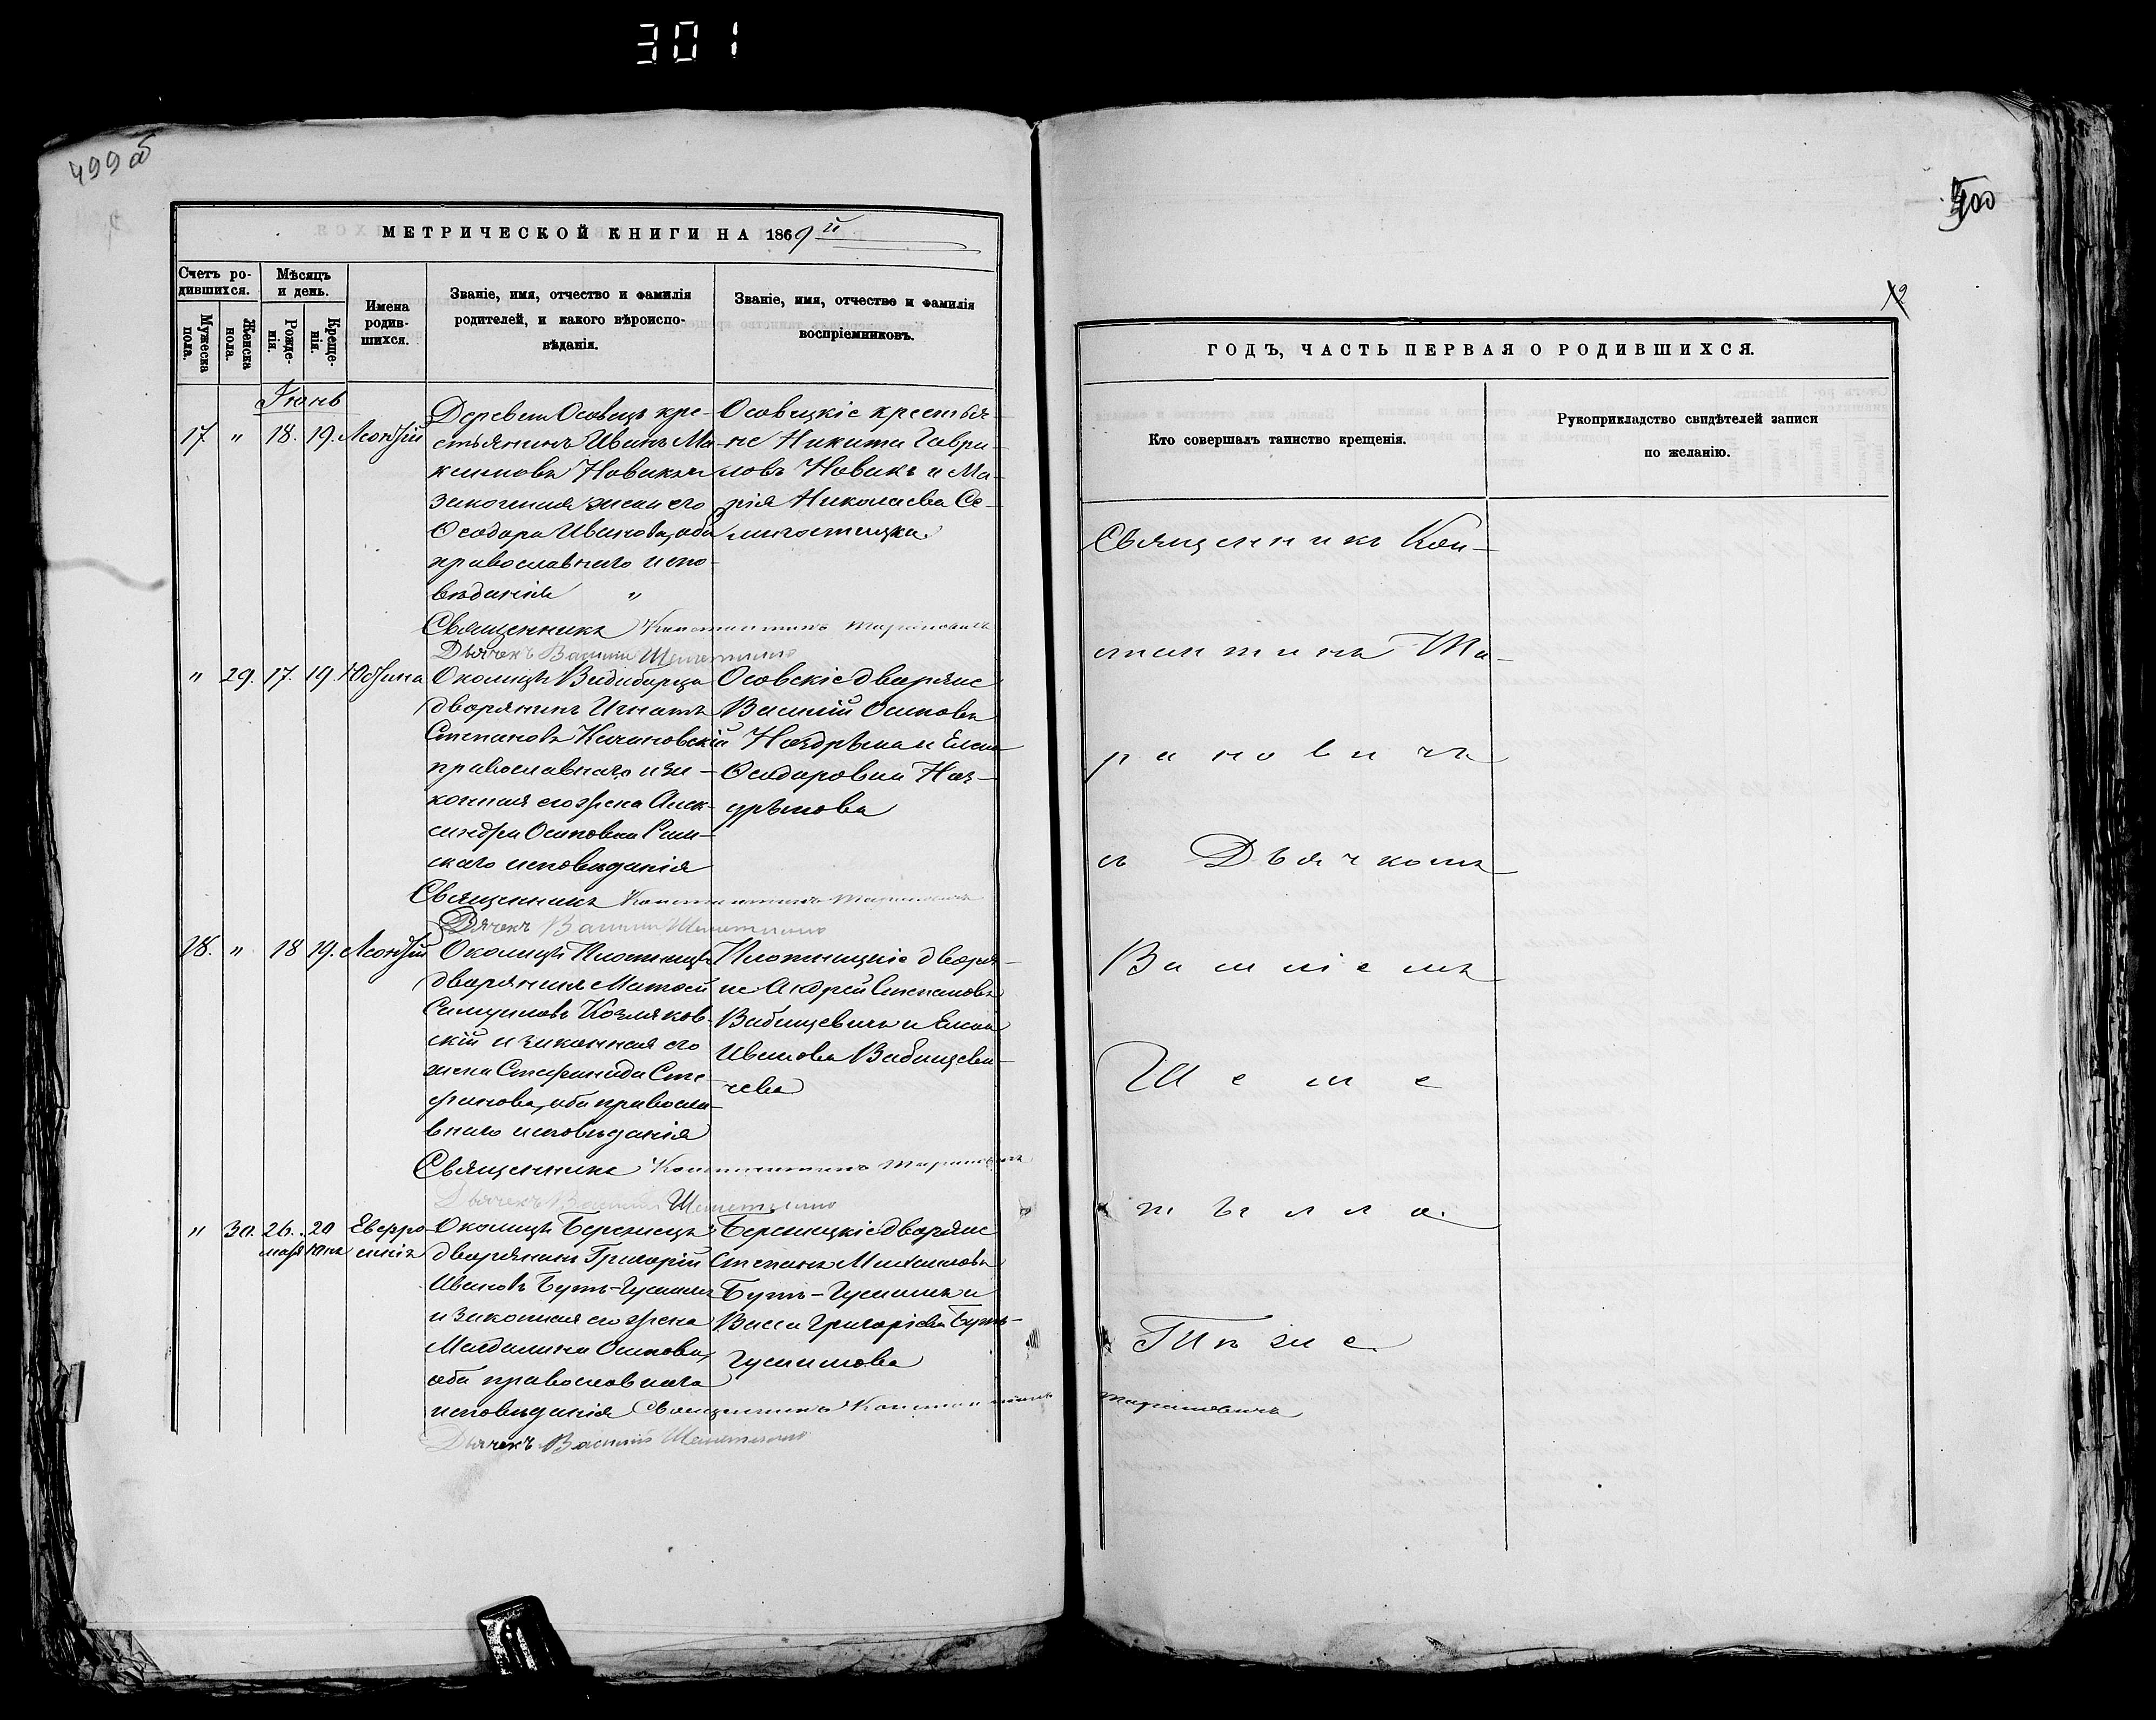 301
499 об
500
МЕТРИЧЕСКОЙ КНИГИ НА 1869 й
Счетъ ро-
дившихся.
Мужеска
пола.
Женска
пола.
Мѣсяцъ
и день.
Рожде-
нія.
Креще-
нія.
Имена
родив-
шихся.
Званіе, имя, отчество и фамилія
родителей, и какого вѣроиспо-
вѣданія.
Званіе, имя, отчество и фамилія
воспріемниковъ.
Іюнь
17 " 18. 19. Леонтій
Деревни Осовецъ кре-
стьянинъ Иванъ Ма-
ксимовъ Новикъ и
законная жена его
Ѳеодора Иванова, оба
православнаго испо-
вѣданія "
Осовецкіе крестья-
не Никита Гаври-
ловъ Новикъ и Ма-
рія Николаева Се-
Священникъ Константинъ Мариновичъ
Дьячекъ Василій
" 29. 17. 19. Юстина
Околицы
дворянинъ Игнатъ
Степановъ
православнаго и за-
конная его жена Алек-
сандра Осиповна Рим-
скаго исповѣданія
Осовскіе дворяне
Василій Осиповъ
и Елена
Ѳеодоровна
Священникъ Константинъ Мариновичъ
Дьячекъ Василій
18. " 18 19. Леонтій
Околицы Плотница
дворянинъ Матѳей
Самуиловъ
скій и законная его
жена Стефанида Сте-
фанова, оба правосла-
внаго исповѣданія
Плотницкіе дворя-
не Андрей Степановъ
и Елена
Иванова
чева
Священникъ Константинъ Мариновичъ
Дьячекъ Василій
" 30. 26. 20 Евфро-
мая Юня синія
Околицы Бережецъ
дворянинъ Григорій
Ивановъ Бутъ-Гусаимъ
и законная его жена
Магдалина Осипова,
оба православнаго
исповѣданія
дворяне
Степанъ Михаиловъ
Бутъ-Гусаимъ и
Васса Григоріева Бутъ-
Гусаимова
Священникъ Константинъ
Мариновичъ
Дьячекъ Василій
ГОДЪ, ЧАСТЬ ПЕРВАЯ О РОДИВШИХСЯ.
Кто совершалъ таинство крещенія.
Рукоприкладство свидѣтелей записи
по желанію.
Священникъ Кон-
стантинъ Ма-
риновичъ
съ Дьячкомъ
Василіемъ
Тѣ же